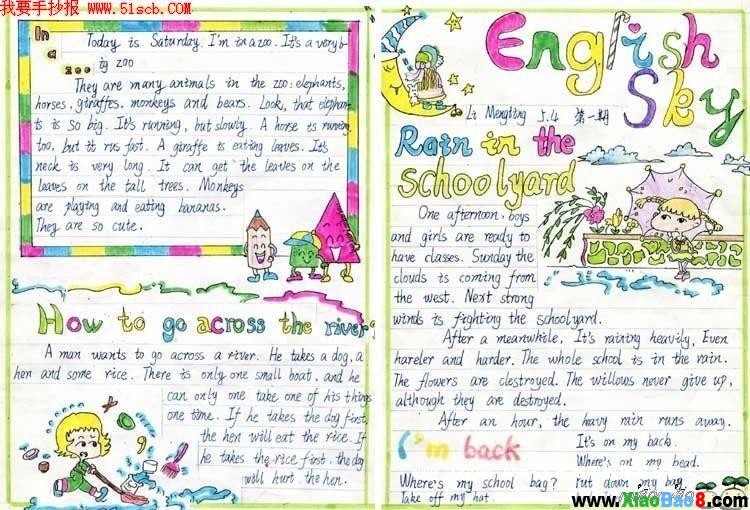 我要手抄报 www.51scb.com
In
a
zoo
Today is Saturday. I'm in a zoo. It's a very b-
ig zoo
They are many animals in the zoo: elephants,
horses, giraffes, monkeys and bears. Look, that elepha-
nts is so big. It's running, but slowly. A horse is running,
too, but it rus fast. A giraffe is eating leaves. It's
neck is very long. It can get the leaves on the
leaves on the tall trees. Monkeys
are playing and eating bananas.
They are so cute.
How to go across the river?
A man wants to go across a river. He takes a dog, a
hen and some rice. There is only one small boat, and he
can only one take one of his things
one time. If he takes the dog first,
the hen will eat the rice. If
he takes the rice first, the dog
will hurt the hen.
English
Sky
Li Mengting 5.4 第一期
Rain in the
schoolyard
One afternoon, boys
and girls are ready to
have classes. Sunday the
clouds is coming from
the west. Next strong
winds is fighting the schoolyard.
After a meanwhile, It's raining heavily, Even
hareler and harder. The whole school is in the rain.
The flowers are clestroyed. The willows never give up,
although they are destroyed.
After an hour, the havy rain runs away.
I'm back
It's on my back.
Where's on my head.
Where's my school bag? Put down my bag.
Take off my hat.
www.XiaoBao8.com